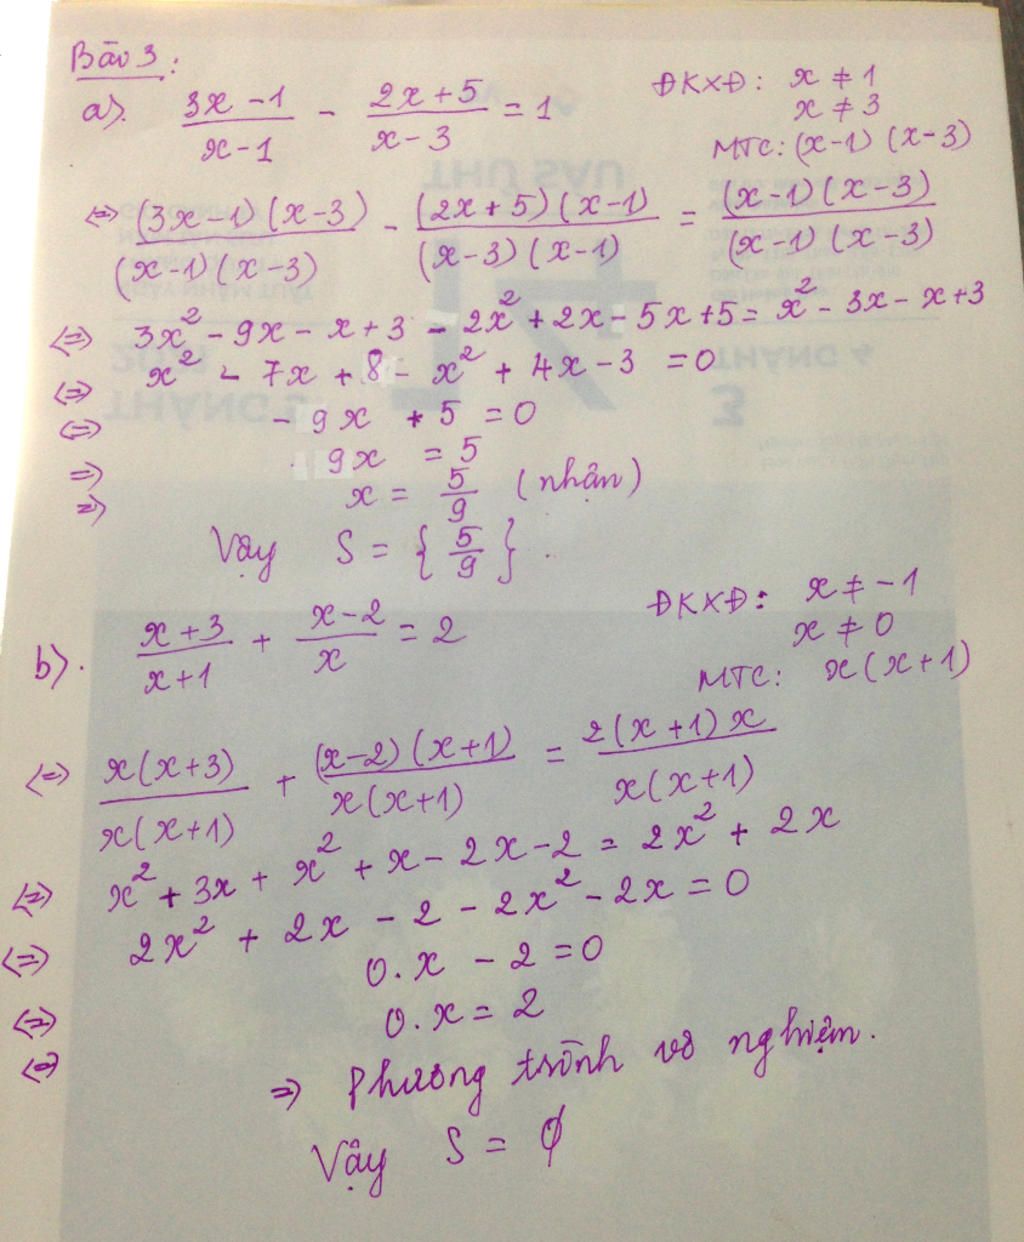 Bài 3:
a). \frac{3x-1}{x-1} - \frac{2x+5}{x-3} = 1
ĐKXĐ: x ≠ 1
x ≠ 3
MTC: (x-1) (x-3)
⇔ \frac{(3x-1)(x-3)}{(x-1)(x-3)} - \frac{(2x+5)(x-1)}{(x-3)(x-1)} = \frac{(x-1)(x-3)}{(x-1)(x-3)}
⇔ 3x² - 9x - x + 3 - 2x² + 2x - 5x + 5 = x² - 3x - x + 3
⇔ x² - 7x + 8 - x² + 4x - 3 = 0
⇔ - 9x + 5 = 0
⇒ 9x = 5
⇒ x = \frac{5}{9} (nhận)
Vậy S = { \frac{5}{9} }.
b). \frac{x+3}{x+1} + \frac{x-2}{x} = 2
ĐKXĐ: x ≠ -1
x ≠ 0
MTC: x(x+1)
⇔ \frac{x(x+3)}{x(x+1)} + \frac{(x-2)(x+1)}{x(x+1)} = \frac{2(x+1)x}{x(x+1)}
⇔ x² + 3x + x² + x - 2x - 2 = 2x² + 2x
⇔ 2x² + 2x - 2 - 2x² - 2x = 0
⇔ 0.x - 2 = 0
⇔ 0.x = 2
⇒ Phương trình vô nghiệm.
Vậy S = ∅
THỨ SÁU
17
THÁNG 4
3